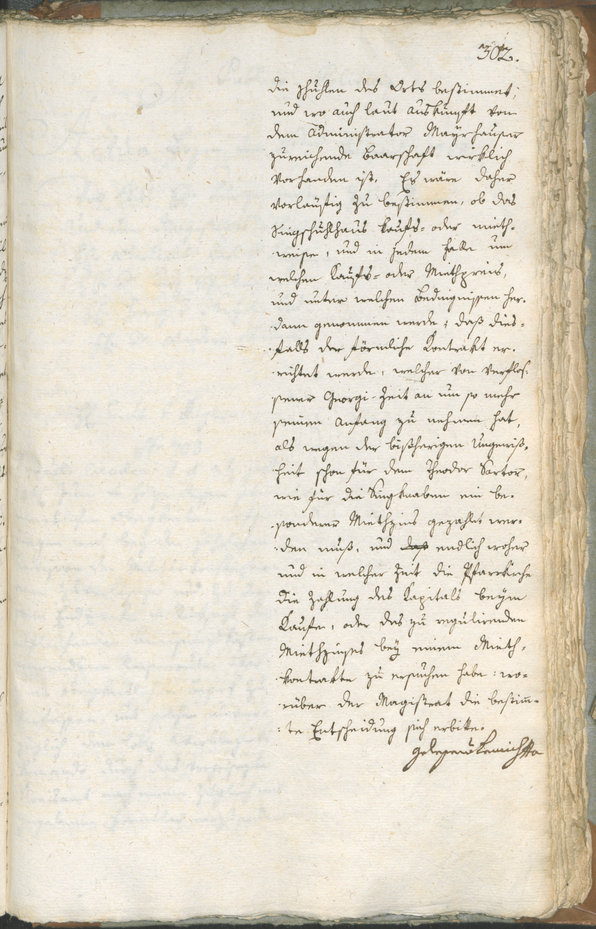 302.
die Schulen des Orts bestimmet;
und wo auch laut Auskunft von
dem Administrator Mayrhauser
zureichende Baarschaft wirklich
vorhanden ist. Es wäre daher
vorläufig zu bestimmen, ob das
Singschuhlhaus kaufs- oder mieth-
weise, und in jedem Falle um
welchen Kaufs- oder Miethpreis,
und unter welchen Bedingnissen her-
dann genommen werde; daß dies-
falls der förmliche Kontrakt er-
richtet werde, welcher von verflos-
sener Georgi-Zeit an um so mehr
seinen Anfang zu nehmen hat,
als wegen der bisherigen Ungewiß-
heit schon für dem Theodor Sartor,
wie für die Singknaben ein be-
sonderer Miethzins gezahlt wer-
den muß, und daß endlich woher
und in welcher Zeit die Pfarrkirche
die Zahlung des Kapitals beym
Kaufe, oder des zu regulirenden
Miethzinses bey einem Mieth-
kontrakte zu ersuchen habe: wo-
rüber der Magistrat die bestimm-
te Entscheidung sich erbitte.